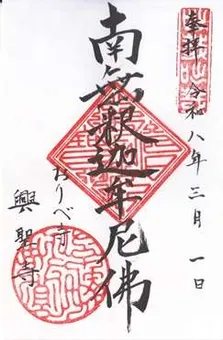 奉拝
令和八年三月一日
南無釈迦牟尼佛
おりべ寺
興聖寺